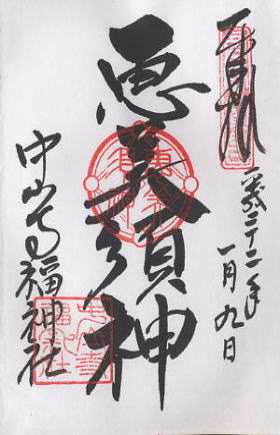 奉拝
平成二十二年
一月九日
恵美須神
中山 福神社